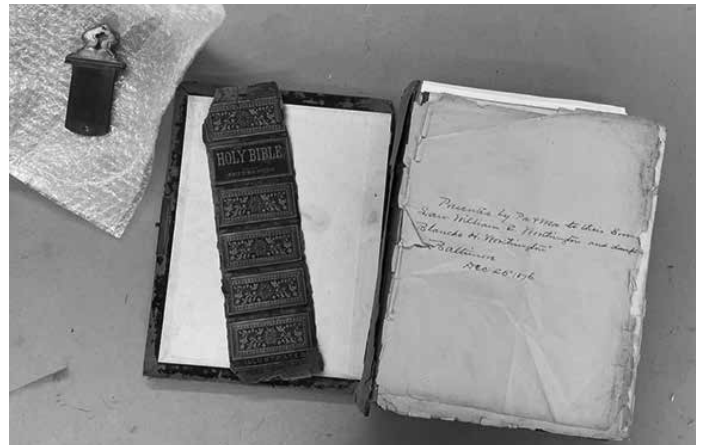 HOLY BIBLE
Presented by Pa & Ma to their Son
William R. Worthington and
Blanche H. Worthington
Baltimore
Dec 25th 1876